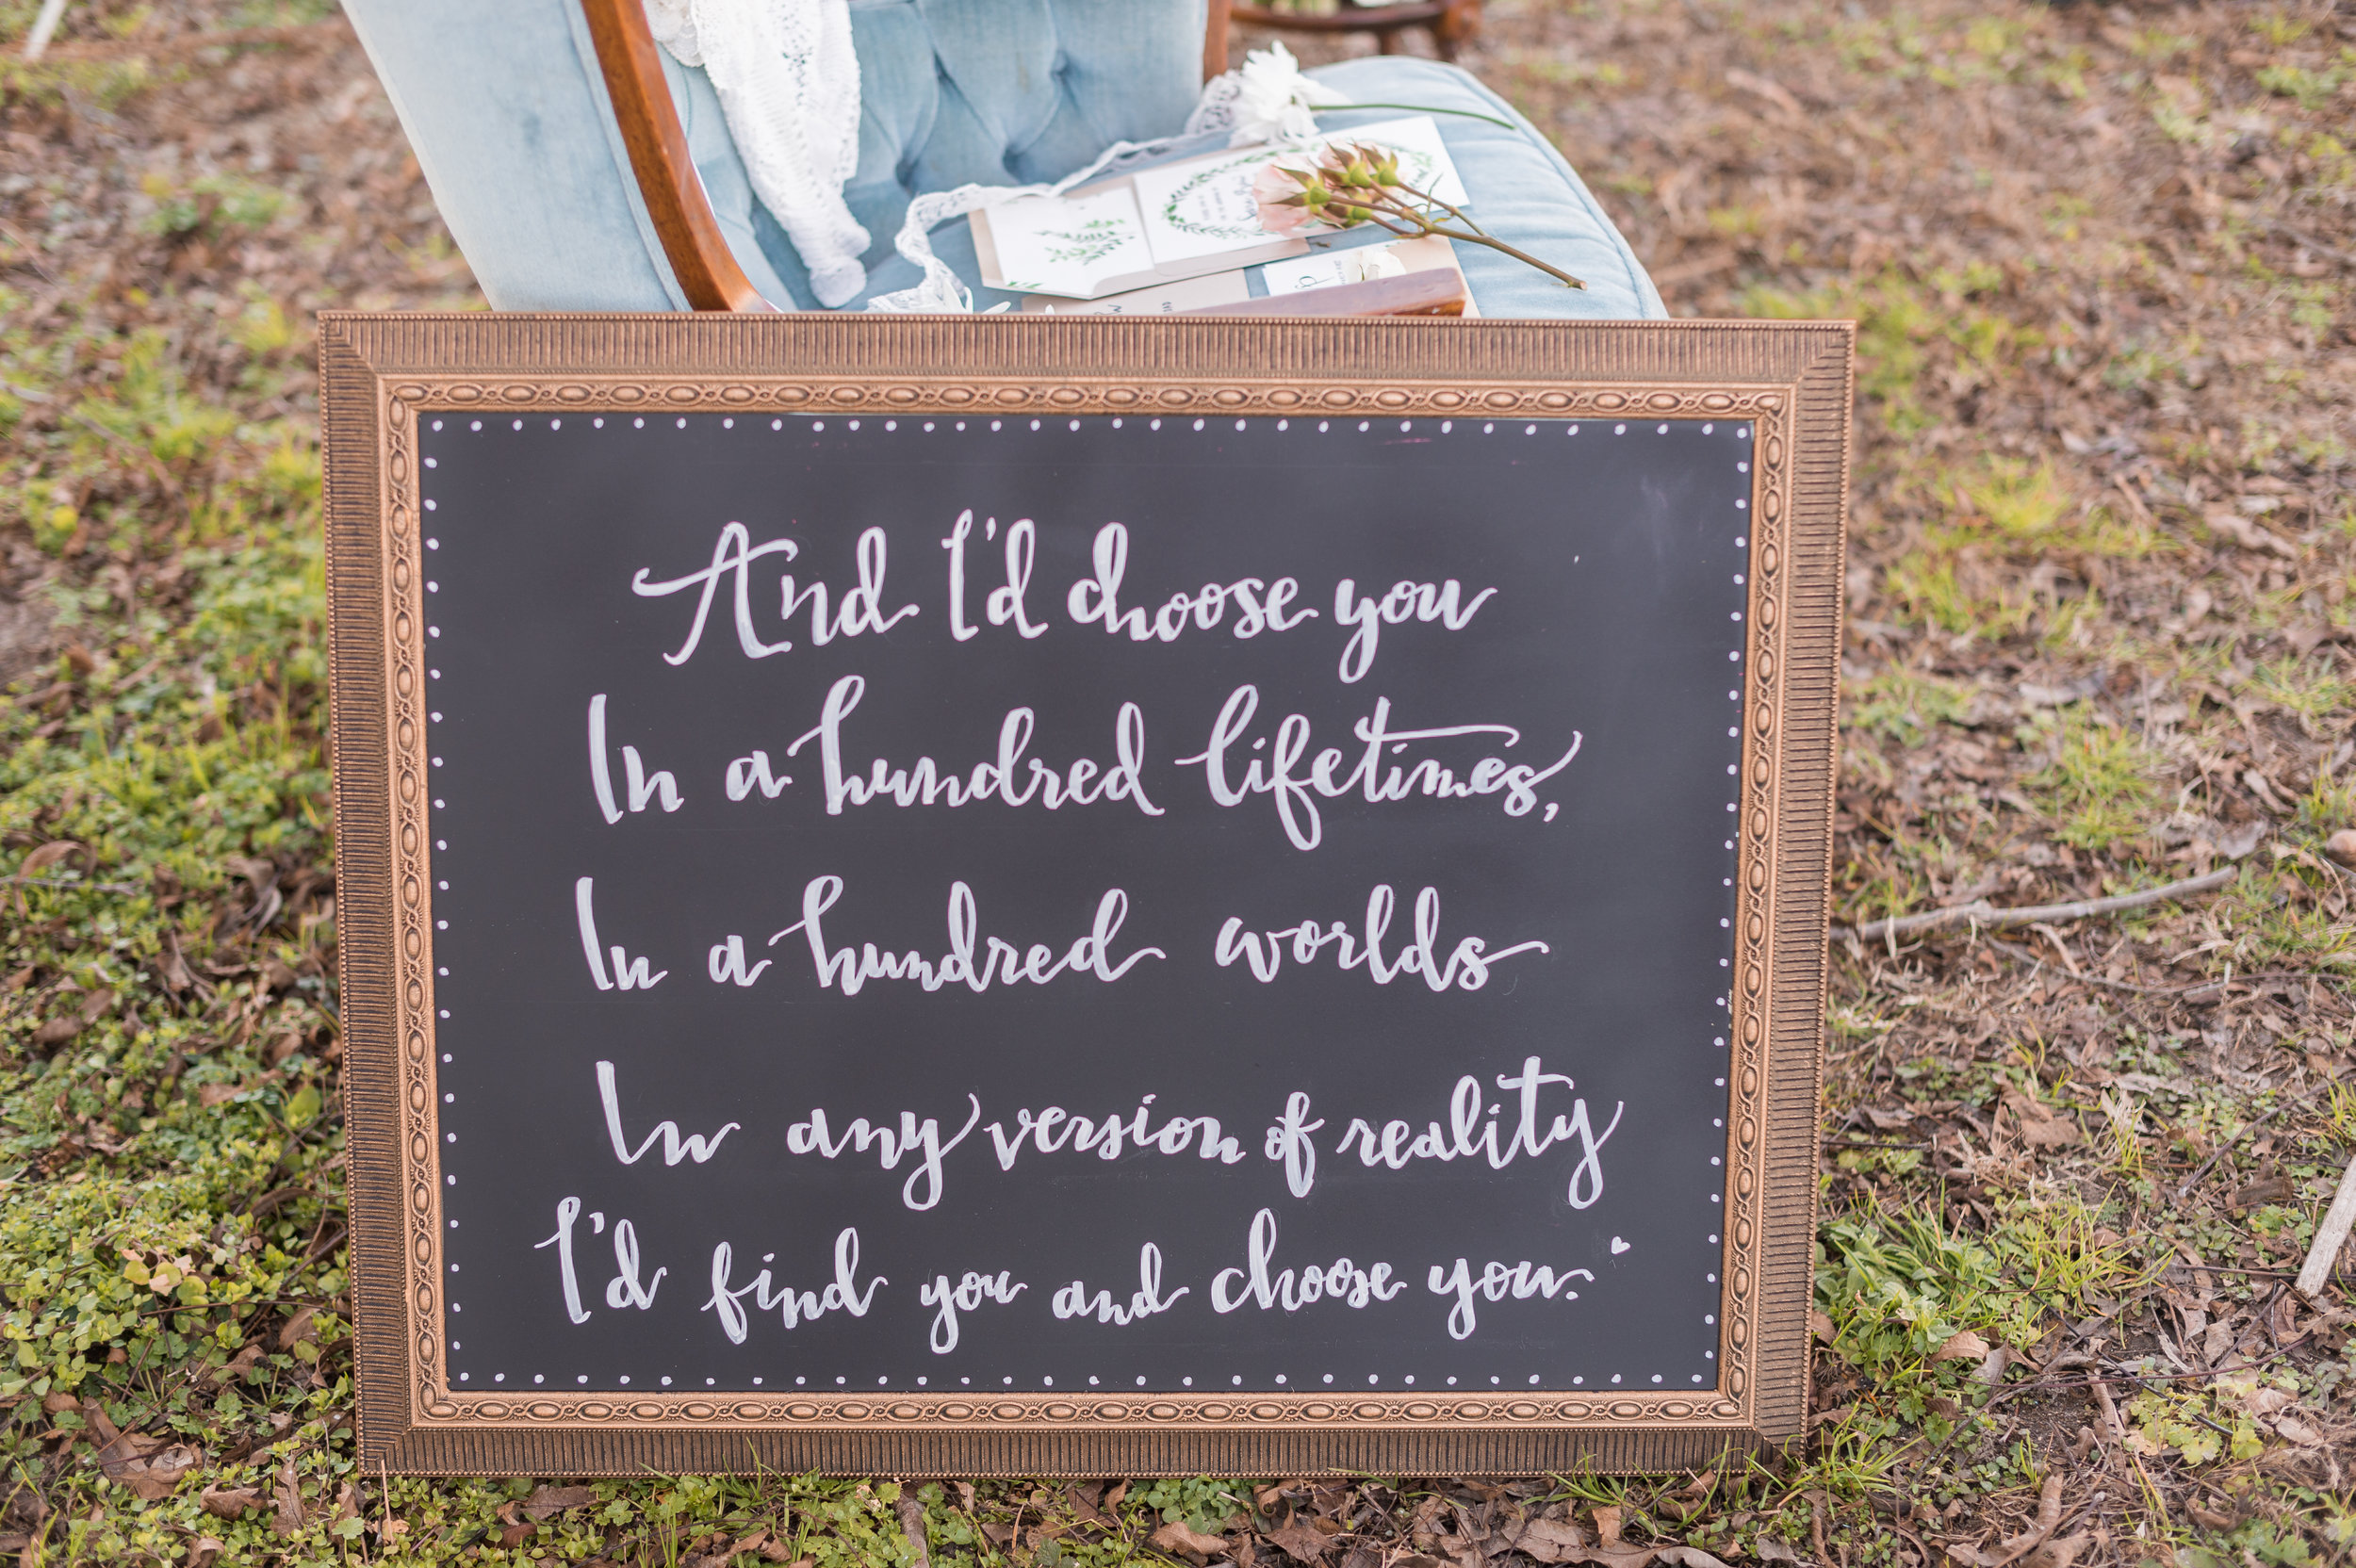 And I'd choose you
In a hundred lifetimes,
In a hundred worlds
In any version of reality
I'd find you and choose you.